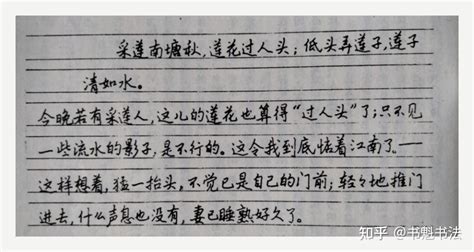 采莲南塘秋，莲花过人头；低头弄莲子，莲子
清如水。
今晚若有采莲人，这儿的莲花也算得“过人头”了；只不见
一些流水的影子，是不行的。这令我到底惦着江南了。—
这样想着，猛一抬头，不觉已是自己的门前；轻轻地推门
进去，什么声息也没有，妻已睡熟好久了。
知乎 @书魁书法